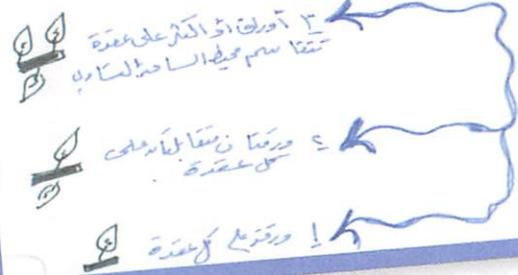 ٣ أوراق أو أكثر على عقدة
تتقاسم محيط الساق بالتساوي
٢ ورقتان متقابلتان على
كل عقدة
١ ورقة على كل عقدة